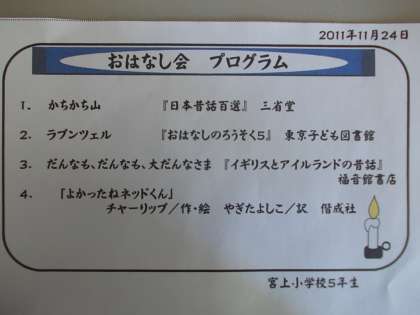 2011年11月24日
おはなし会　プログラム
1.　かちかち山　『日本昔話百選』　三省堂
2.　ラプンツェル　『おはなしのろうそく5』　東京子ども図書館
3.　だんなも、だんなも、大だんなさま　『イギリスとアイルランドの昔話』
福音館書店
4.　「よかったねネッドくん」
チャーリップ／作・絵　やぎたよしこ／訳　偕成社
宮上小学校5年生